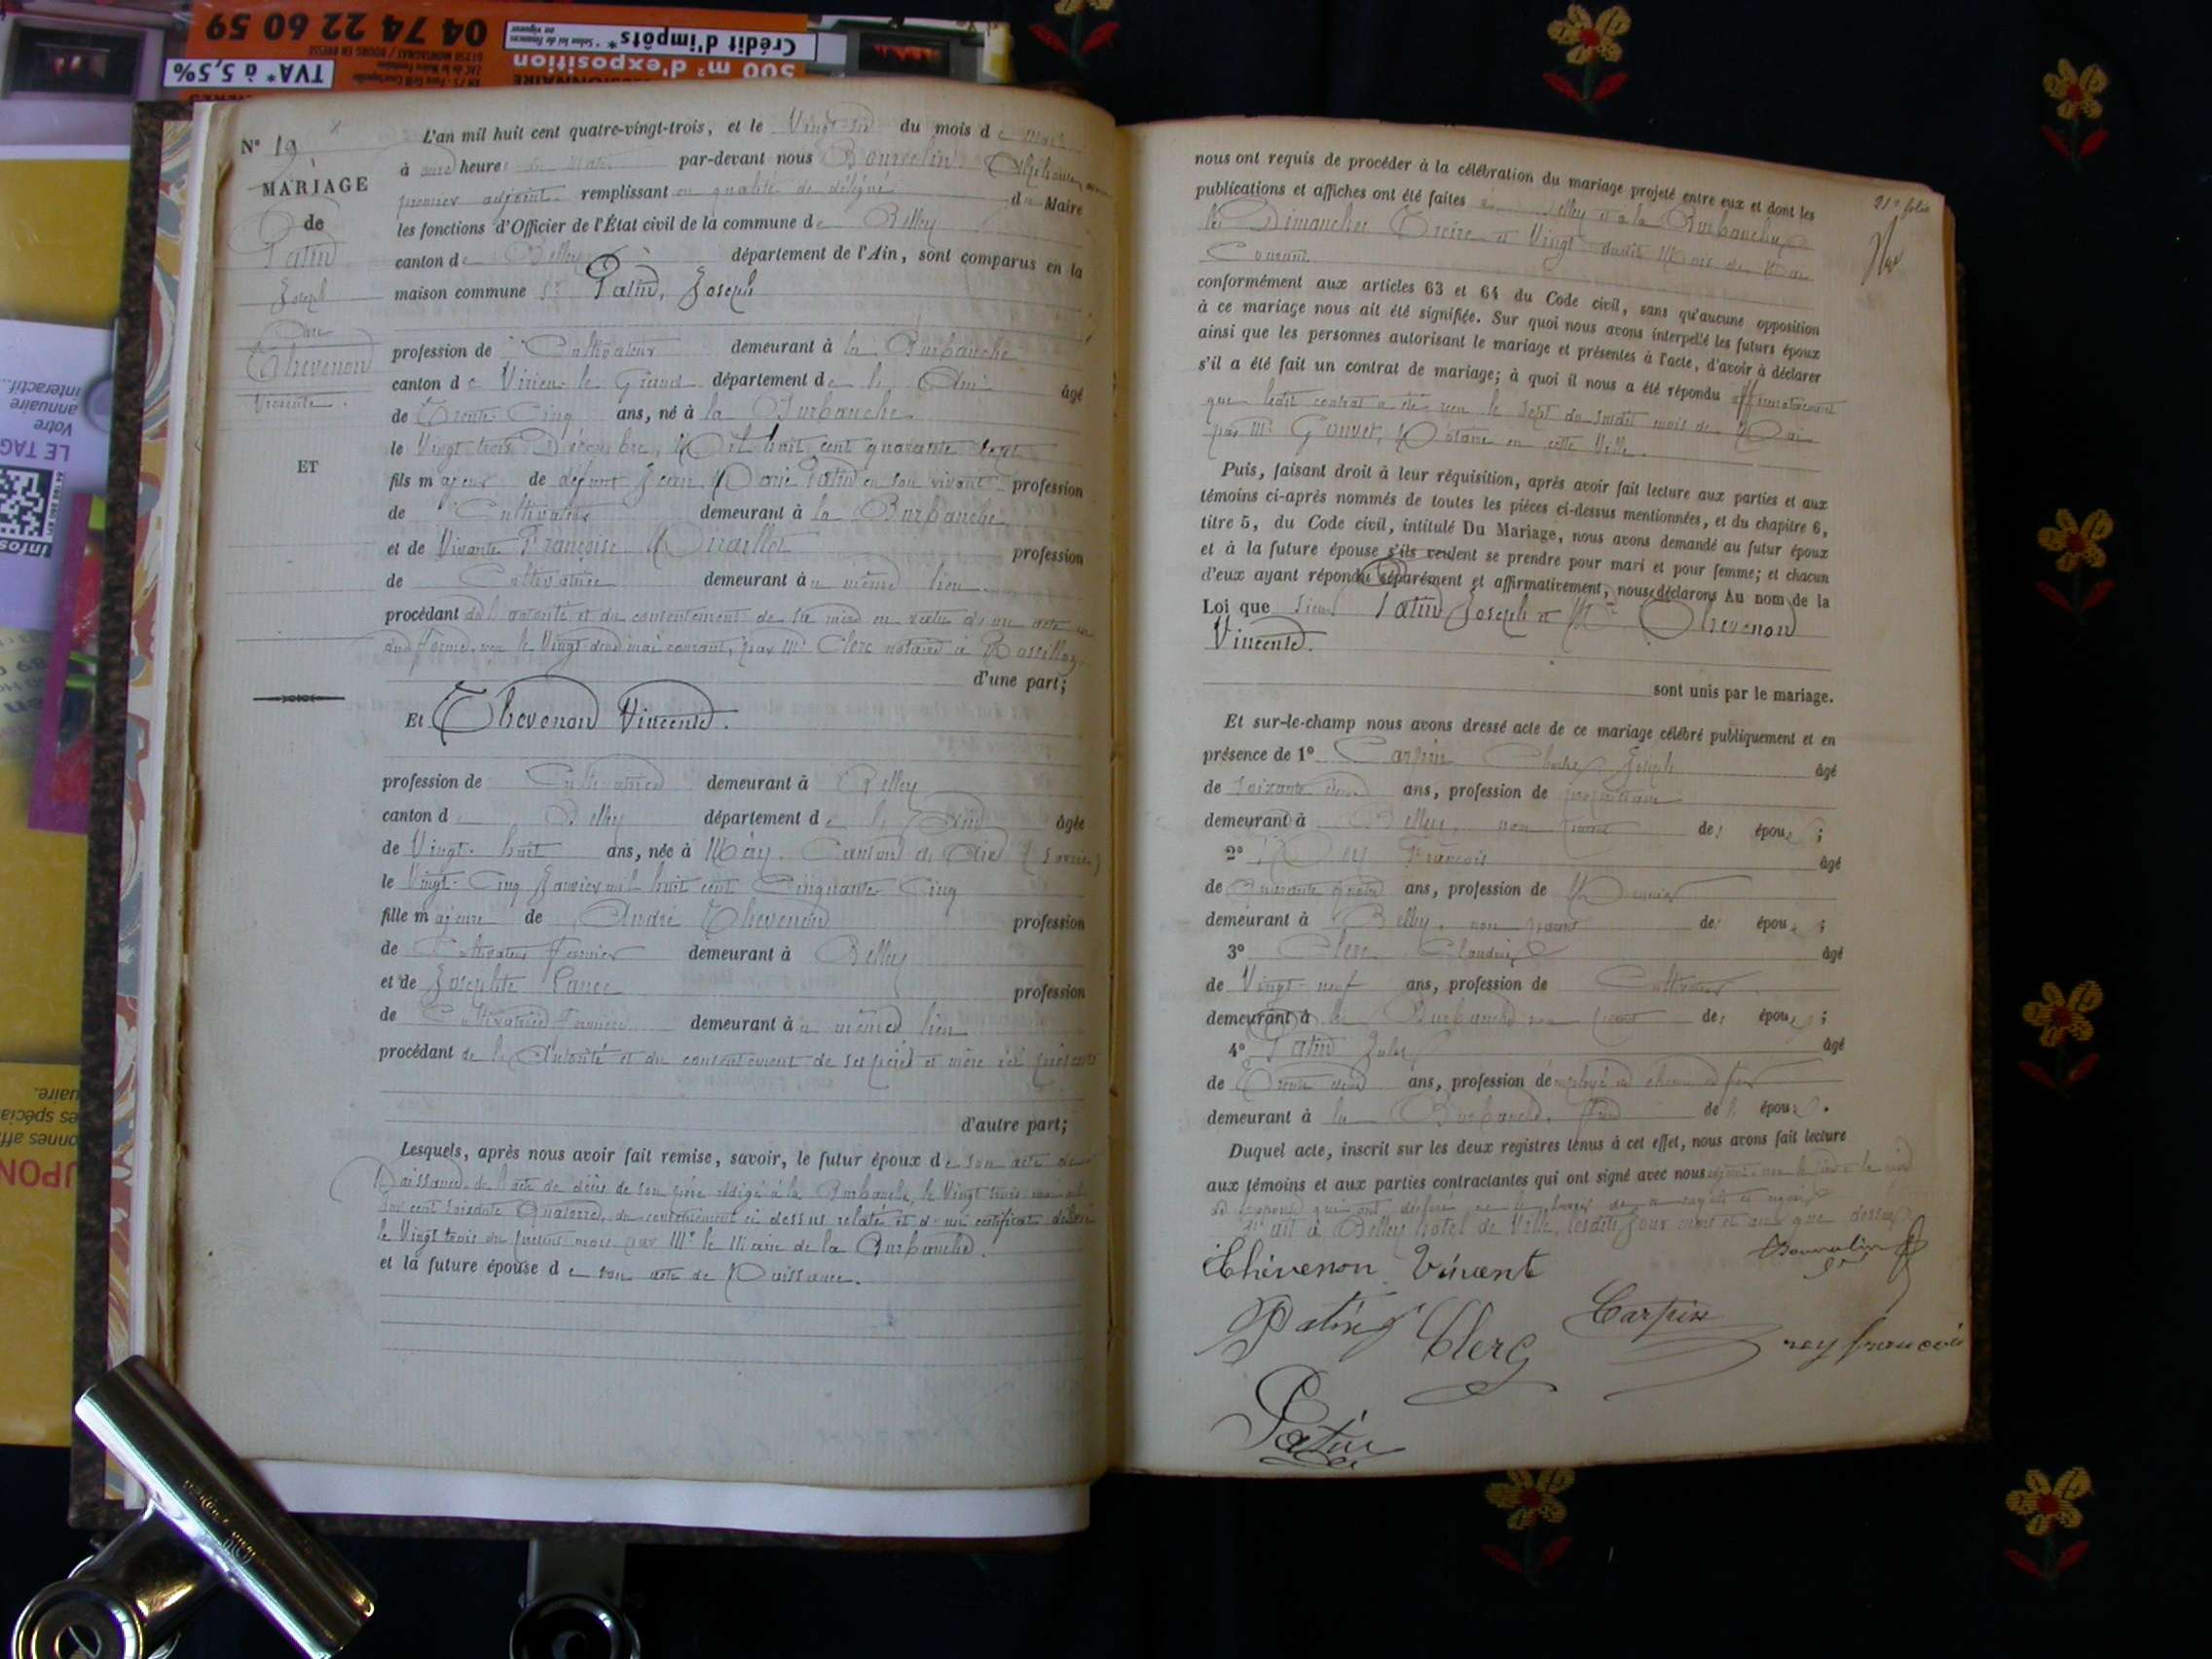 04 74 22 60 59
TVA* à 5,5%
Crédit d'impôts*
500 m² d'exposition
interactif...
annuaire
Votre
LE TAG
Infos
N° 19
MARIAGE
de
Patin
Joseph
Avec
Thevenon
Vincente.
ET
L'an mil huit cent quatre-vingt-trois, et le Vingt-six du mois de Mai
à onze heures du matin par-devant nous Bourdin
premier adjoint remplissant en qualité de délégué du Maire
les fonctions d'Officier de l'État civil de la commune de Belley
canton de Belley département de l'Ain, sont comparus en la
maison commune Sr Patin, Joseph
profession de Cultivateur demeurant à la Burbanche
canton de Virieu-le-Grand département de l'Ain âgé
de Trente-Cinq ans, né à la Burbanche
le Vingt trois Décembre, Mil huit cent quarante sept
fils majeur de défunt Jean Marie Patin en son vivant profession
de Cultivateur demeurant à la Burbanche
et de Vivante Françoise profession
de Cultivatrice demeurant au même lieu.
procédant de l'autorité et du consentement de sa mère en vertu d'un acte en
due forme, reçu le Vingt deux mai courant, par Me Clerc notaire à Rossillon
d'une part;
Et Thevenon Vincente.
profession de Cultivatrice demeurant à Belley
canton de Belley département de l'Ain âgée
de Vingt-huit ans, née à Canton d' (Savoie)
le Vingt-Cinq Janvier mil huit cent Cinquante-Cinq
fille majeure de André Thevenon profession
de Cultivateur Fermier demeurant à Belley
et de Josephte profession
de Cultivatrice Fermière demeurant au même lieu
procédant de l'Autorité et du consentement de ses père et mère ici présents
d'autre part;
Lesquels, après nous avoir fait remise, savoir, le futur époux de son acte de
Naissance, de l'acte de décès de son père rédigé à la Burbanche, le Vingt trois mai mil
huit cent soixante Quatorze, du consentement ci dessus relaté et d'un certificat délivré
le Vingt trois du présent mois par Mr le Maire de la Burbanche.
et la future épouse de son acte de Naissance.
21e folio
nous ont requis de procéder à la célébration du mariage projeté entre eux et dont les
publications et affiches ont été faites à Belley et à la Burbanche
les Dimanches Treize et Vingt dudit Mois de Mai
Courant
conformément aux articles 63 et 64 du Code civil, sans qu'aucune opposition
à ce mariage nous ait été signifiée. Sur quoi nous avons interpellé les futurs époux
ainsi que les personnes autorisant le mariage et présentes à l'acte, d'avoir à déclarer
s'il a été fait un contrat de mariage; à quoi il nous a été répondu affirmativement
que ledit contrat a été reçu le sept du susdit mois de Mai
par Me Notaire en cette Ville.
Puis, faisant droit à leur réquisition, après avoir fait lecture aux parties et aux
témoins ci-après nommés de toutes les pièces ci-dessus mentionnées, et du chapitre 6,
titre 5, du Code civil, intitulé Du Mariage, nous avons demandé au futur époux
et à la future épouse s'ils veulent se prendre pour mari et pour femme; et chacun
d'eux ayant répondu séparément et affirmativement, nous déclarons Au nom de la
Loi que Sieur Patin Joseph et Thevenon
Vincente.
sont unis par le mariage.
Et sur-le-champ nous avons dressé acte de ce mariage célébré publiquement et en
présence de 1° Carpin Charles Joseph âgé
de Soixante deux ans, profession de propriétaire
demeurant à Belley, non parent des époux;
2° Rey François âgé
de Quarante quatre ans, profession de
demeurant à Belley, non parent des époux;
3° Clerc Claudius âgé
de Vingt-neuf ans, profession de Cultivateur
demeurant à la Burbanche non parent des époux;
4° Patin Jules âgé
de Trente deux ans, profession d'employé au chemin de fer
demeurant à la Burbanche, frère de l'époux.
Duquel acte, inscrit sur les deux registres tenus à cet effet, nous avons fait lecture
aux témoins et aux parties contractantes qui ont signé avec nous adjoint non la
de ce requis
Fait à Belley hôtel de Ville, lesdits jour mois et an que dessus.
Thévenon Vincent
Patin J Clerc Carpin rey francois
Patin